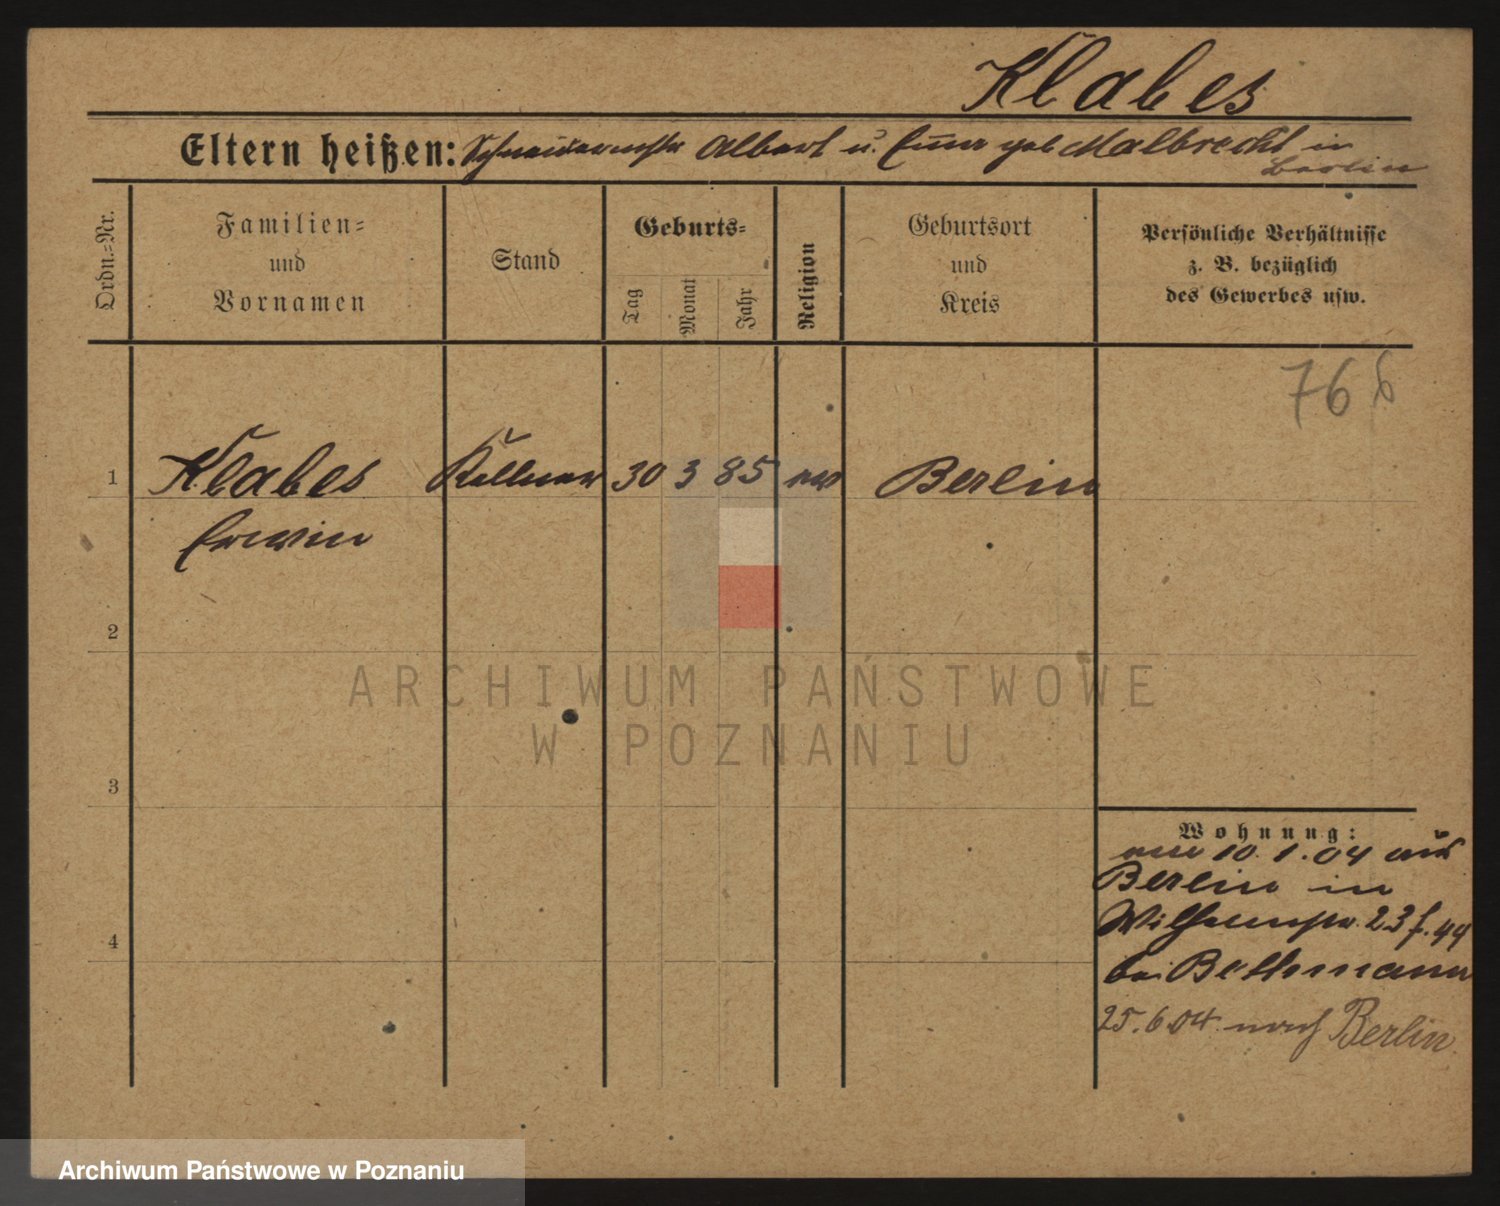 Klabes
Eltern heißen: Schneidermstr Albert u. Emma geb Malbrecht in
Berlin
Ordn.-Nr.
Familien-
und
Vornamen
Stand
Geburts-
Tag
Monat
Jahr
Religion
Geburtsort
und
Kreis
Persönliche Verhältnisse
z. B. bezüglich
des Gewerbes usw.
76 b
1 Klabes Kellner 30 3 85 ev Berlin
Erwin
2
ARCHIWUM PAŃSTWOWE
W POZNANIU
3
Wohnung:
10.1.04 aus
Berlin in
Wilhelmstr. 23 f. 44
bei Bethmann
25.6.04 nach Berlin.
4
Archiwum Państwowe w Poznaniu